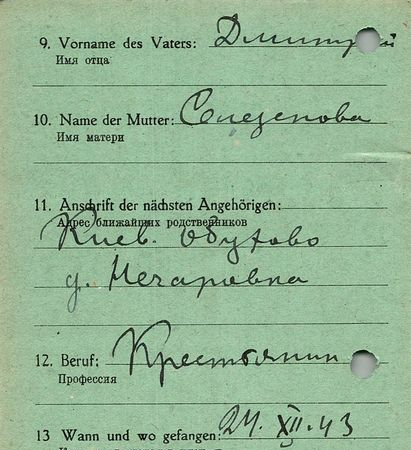 9. Vorname des Vaters: Дмитрий
Имя отца
10. Name der Mutter: Слезенова
Имя матери
11. Anschrift der nächsten Angehörigen:
Адрес ближайших родственников
Киев. Обухово
д. Нечаровка
12. Beruf: Крестьянин
Профессия
13 Wann und wo gefangen: 24. XII. 43